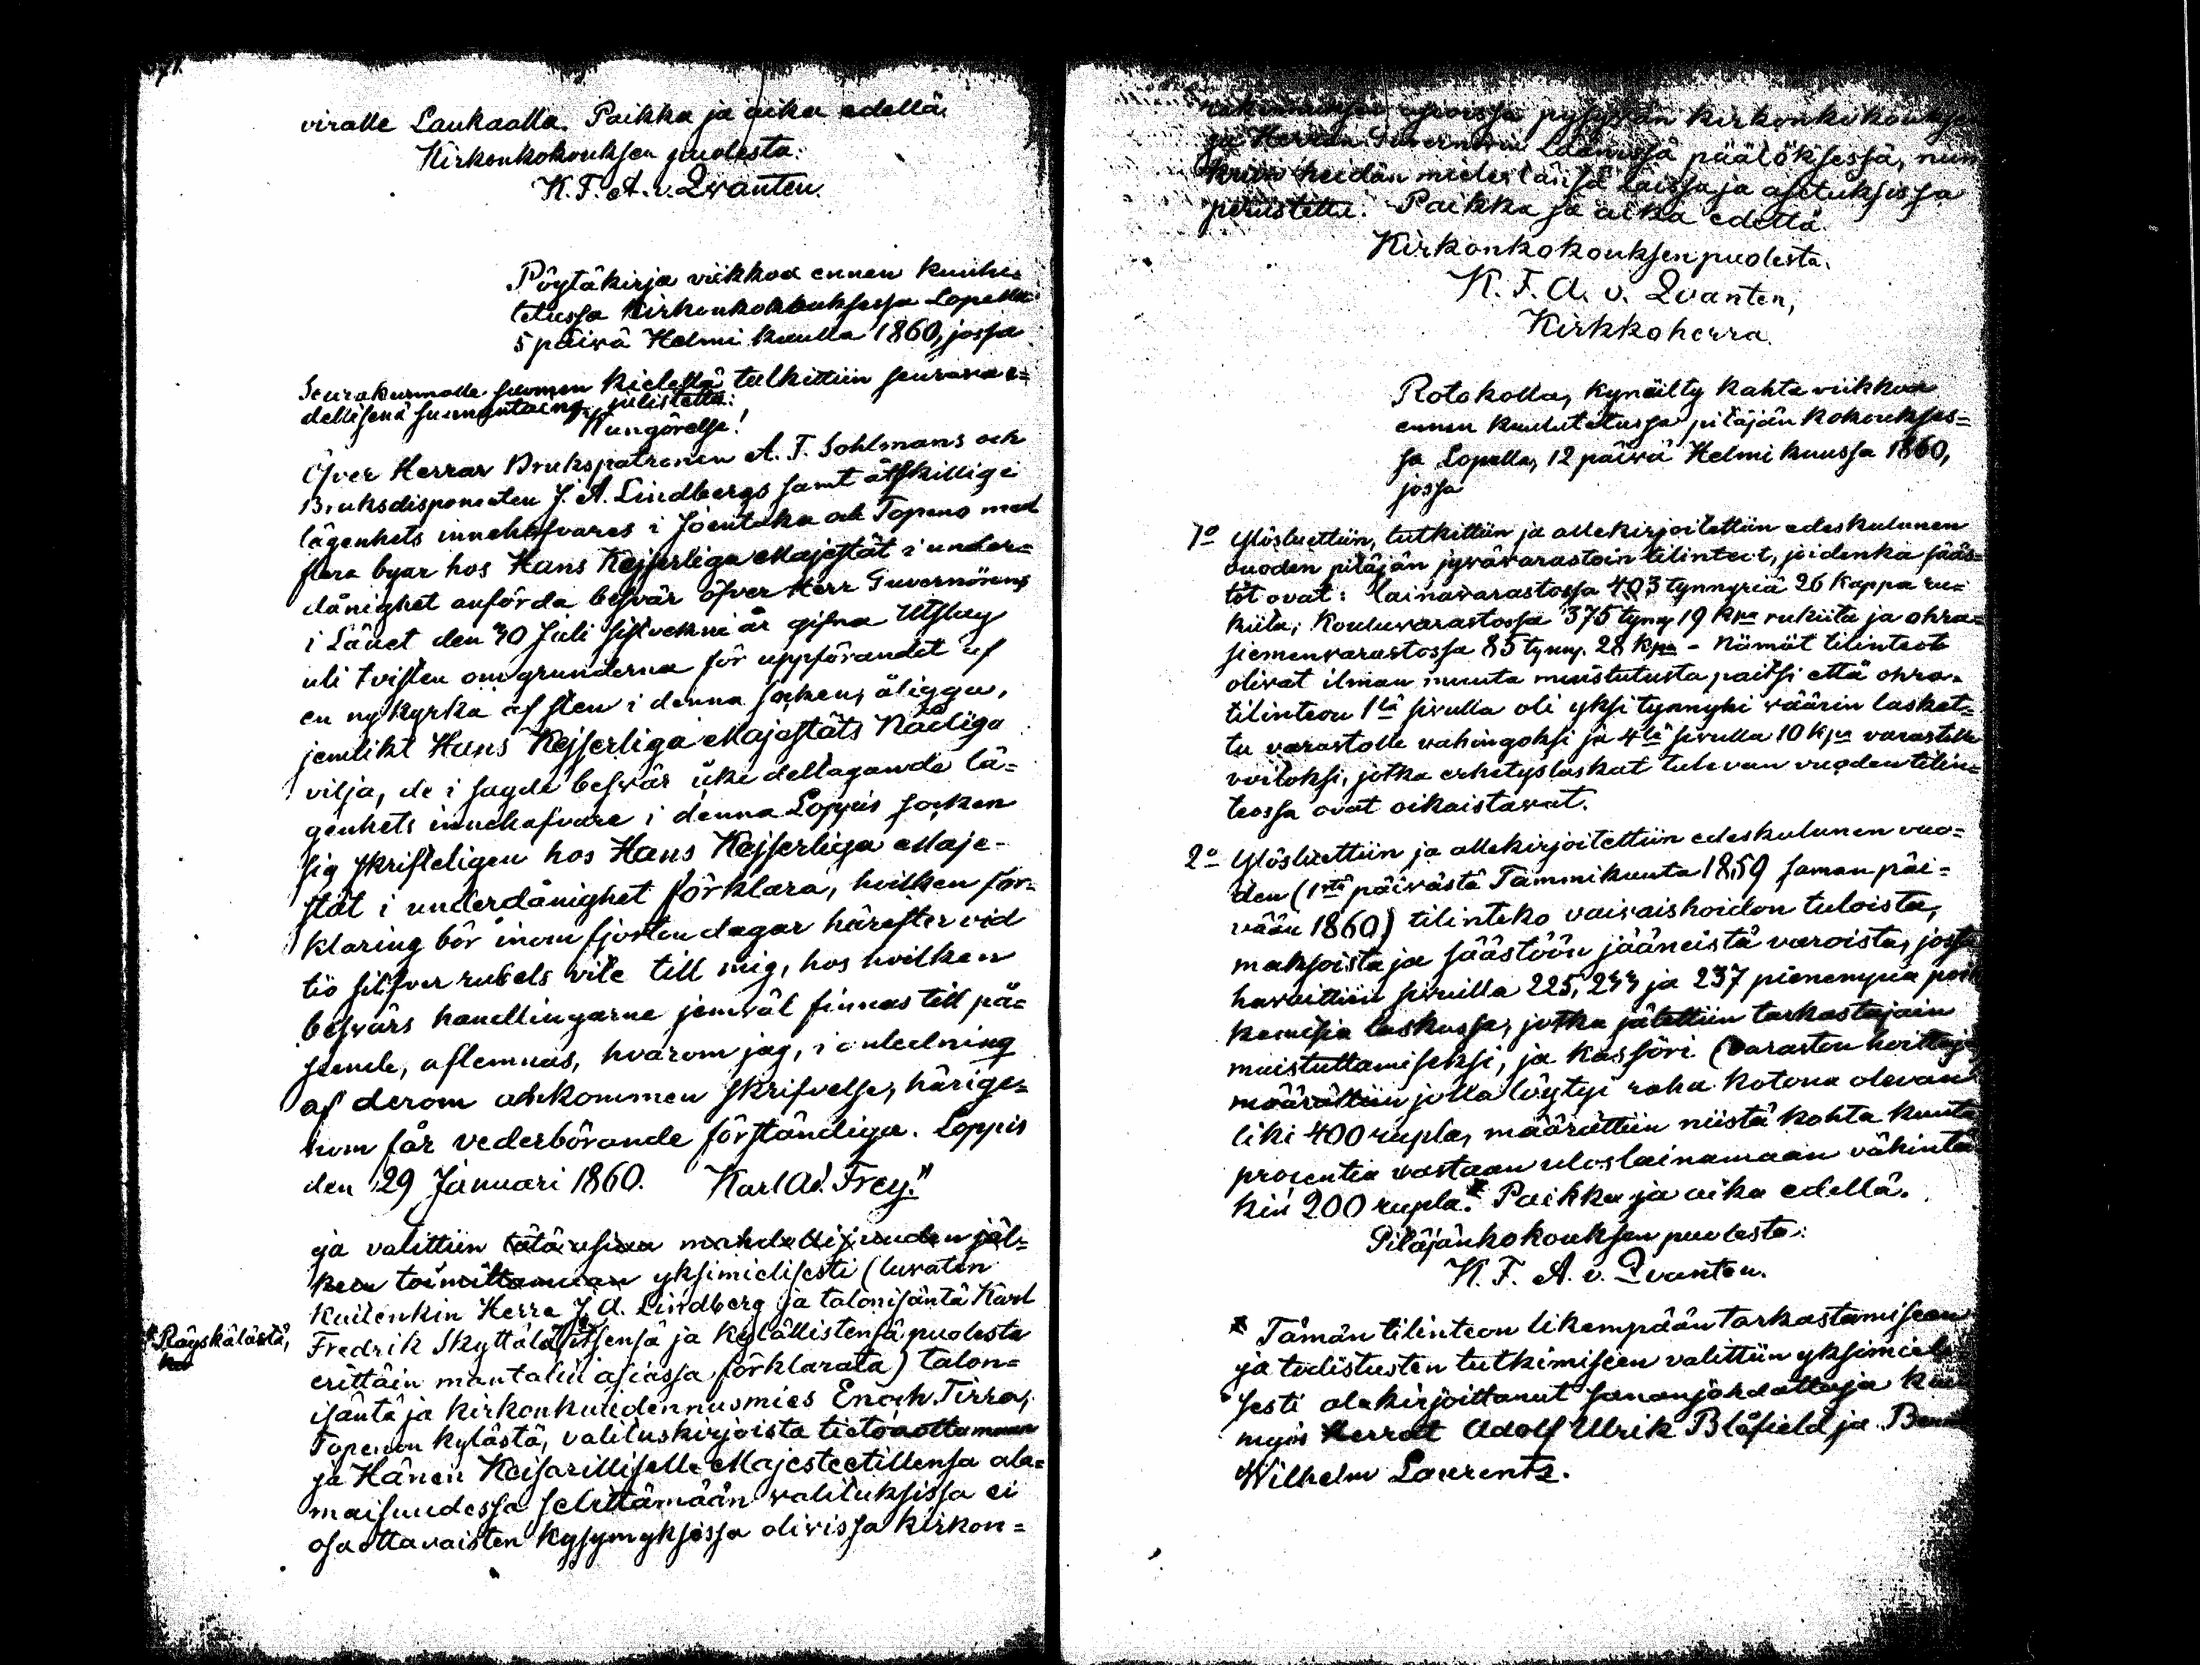 viralle Laukaalla. Paikka ja aika edellä.
Kirkonkokouksen puolesta:
K. F. A. v. Qvanten.
Pöytäkirja viikkoa ennen kuulu-
tetussa Kirkonkokouksessa Lopella
5 päivä Helmi kuulla 1860, jossa
Seurakunnalle suomen kielellä tulkittiin seuraava e-
dellisenä sunnuntaina julistettu:
"Kungörelse!
Öfver Herrar Brukspatronen A. F. Sohlmans och
Bruksdisponenten J. A. Lindbergs samt åtskillige
lägenhets innehafvares i Joentaka och Topeno med
flera byar hos Hans Kejserliga Majestät i under-
dånighet anförda besvär öfver Herr Guvernörens
i Länet den 30 Juli sistvekne år gifna Utslag
uti tvisten om grunderna för uppförandet af
en ny kyrka af sten i denna socken, åligga,
jemlikt Hans Kejserliga Majestäts Nådiga
vilja, de i sagde besvär icke deltagande lä-
genhets innehafvare i denna Loppis socken
sig skrifteligen hos Hans Kejserliga Maje-
stät i underdånighet förklara, hvilken för-
klaring bör inom fjorton dagar härefter vid
tio silfver rubels vite till mig, hos hvilken
besvärs handlingarne jemväl finnas till på-
seende, aflemnas, hvarom jag, i anledning
af derom ankommen skrifvelse, härige-
nom får vederbörande förständiga. Loppis
den 29 Januari 1860. Karl Ad. Frey."
ja valittiin tätä asiaa mahdollisuuden jäl-
keen toimittamaan yksimielisesti (luvaten
kuitenkin Herra J. A. Lindberg ja talonisäntä Karl
Fredrik Skyttälä itsensä ja kylällistensä puolesta
* Räyskälästä,
erittäin mantalin asiassa förklarata) talon-
isäntä ja kirkonkuudennusmies Enoch Tirra,
Topenon kylästä, valituskirjoista tietoa ottamaan
ja Hänen Keisarilliselle Majesteetillensa ala-
maisuudessa selittämään valituksissa ei
osaottavaisten kysymyksessä olivissa kirkon-
asioissa pysyvän kirkonkokouksen
ja Herran Guvernörin Läänissä päätöksessä, niin
kuin heidän mielestänsä laissa ja asetuksissa
perustettu. Paikka ja aika edellä.
Kirkonkokouksen puolesta.
K. F. A. v. Qvanten,
Kirkkoherra.
Rotokolla, kynäilty kahta viikkoa
ennen kuulutetussa pitäjän kokoukses-
sa Lopella, 12 päivä Helmi kuussa 1860,
jossa
1o Ylösluettiin, tutkittiin ja allekirjoitettiin edeskulunen
vuoden pitäjän jyvävarastoin tilinteot, joidenka sääs-
töt ovat: lainavarastossa 403 tynnyriä 26 kappa ru-
kiita; kouluvarastossa 375 tynny 19 kpa rukiita ja ohra-
siemenvarastossa 85 tynny. 28 kpa - Nämät tilinteot
olivat ilman muuta muistutusta paitsi että ohra-
tilinteon 1lä sivulla oli yksi tynnyri väärin lasket-
tu varastolle vahingoksi ja 4lä sivulla 10 kpa varastolle
voitoksi, jotka erhetyslaskut tulevan vuoden tilin-
teossa ovat oikaistavat.
2o Ylösluettiin ja allekirjoitettiin edeskulunen vuo-
den (1stä päivästä Tammikuuta 1859 saman päi-
vään 1860) tilinteko vaivaishoidon tuloista,
maksoista ja säästöön jääneistä varoista, jossa
havaittiin sivuilla 225, 233 ja 237 pienempiä poik
kemisia laskussa, jotka jätettiin tarkastajain
muistuttamiseksi, ja kassöri (varaston hoitaja)
määrättiin jolla löytyi raha kotona olevan
liki 400 rupla, määrättiin niistä kohta kuuta
procentia vastaan uloslainamaan vähintä
kin 200 rupla.* Paikka ja aika edellä.
Pitäjänkokouksen puolesta:
K. F. A. v. Qvanten.
* Tämän tilinteon likempään tarkastamiseen
ja todistusten tutkimiseen valittiin yksimieli
sesti alakirjoittanut sananjohdattaja kuin
myös Herrat Adolf Ulrik Blåfield ja
Wilhelm Laurentz.